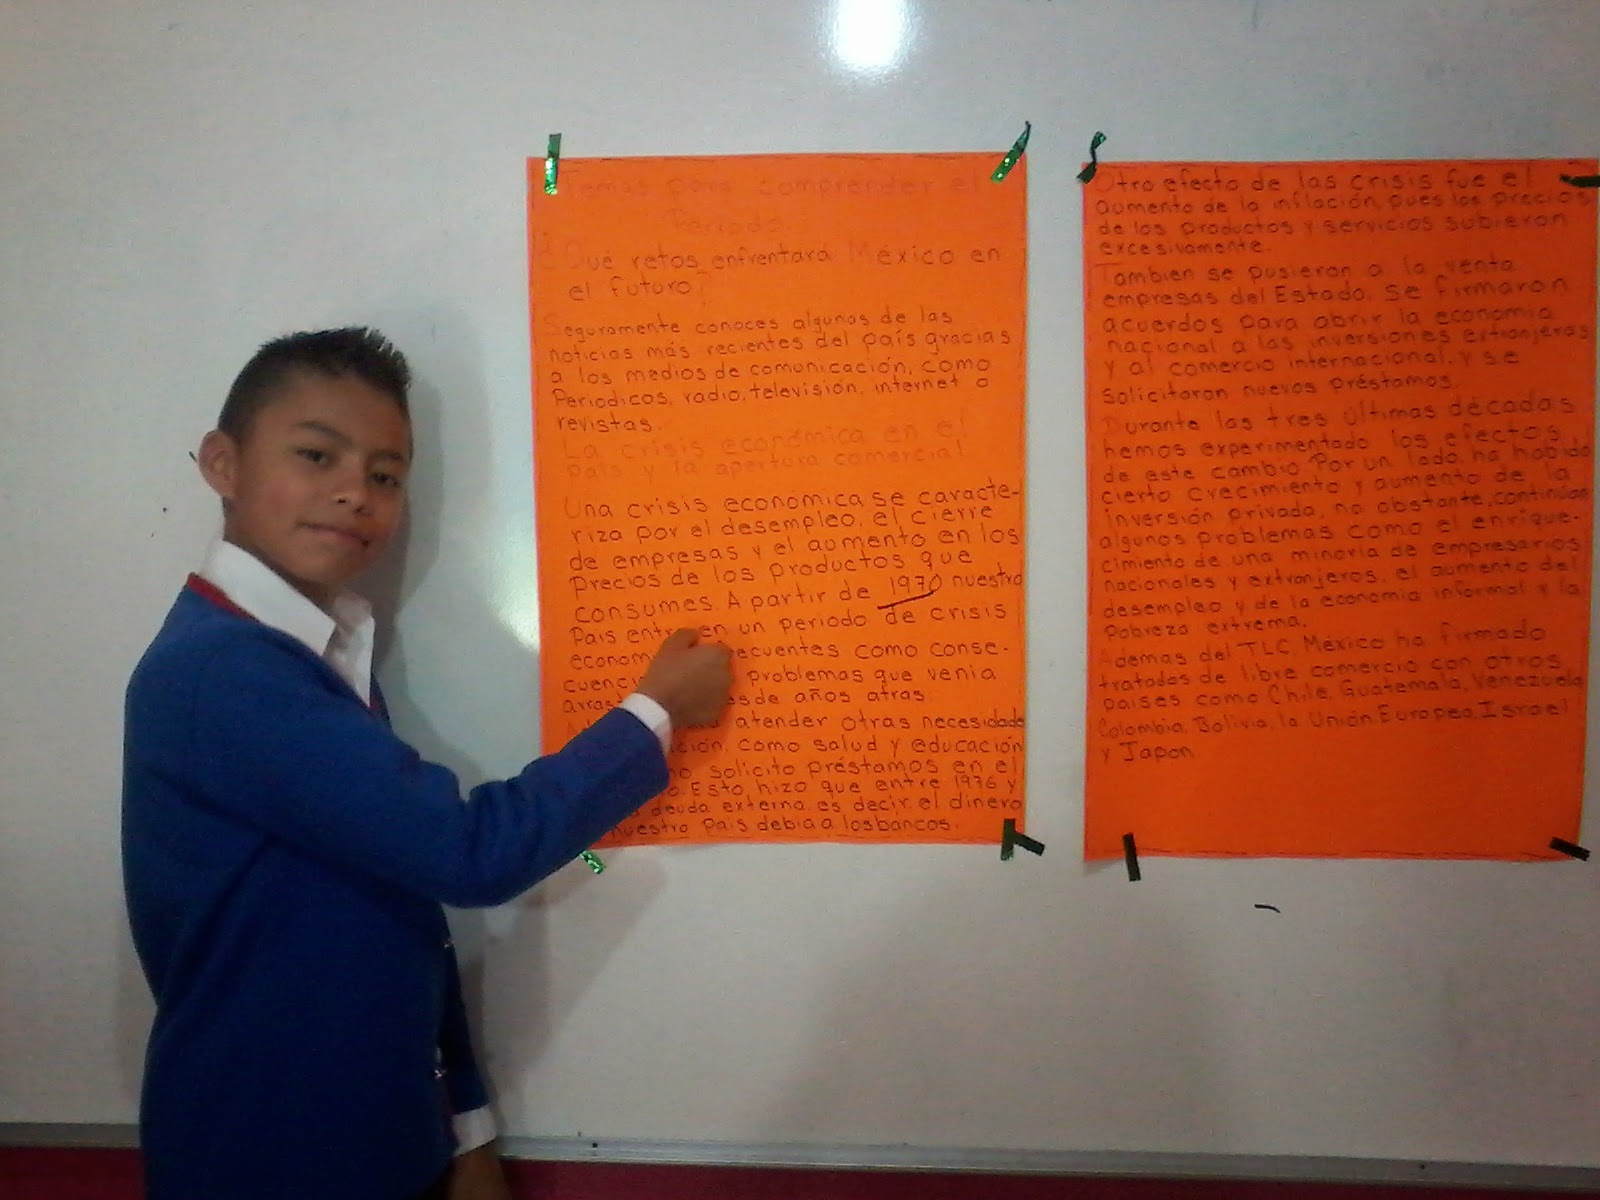 Temas para comprender el
Periodo.
¿Qué retos enfrentará México en
el futuro?
Seguramente conoces algunas de las
noticias más recientes del país gracias
a los medios de comunicación, como
Periodicos, radio, televisión, internet o
revistas.
La crisis económica en el
país y la apertura comercial
Una crisis economica se caracte-
riza por el desempleo, el cierre
de empresas y el aumento en los
Precios de los productos que
consumes. A partir de 1970 nuestro
País en un periodo de crisis
como conse-
problemas que venia
años atras.
atender otras necesidade
como salud y educación
solicito préstamos en el
Esto hizo que entre 1976 y
deuda externa, es decir el dinero
nuestro País debia a los bancos.
Otro efecto de las crisis fue el
aumento de la inflación, pues los precios
de los productos y servicios subieron
excesivamente.
Tambien se pusieron a la venta
empresas del Estado, se firmaron
acuerdos para abrir la economia
nacional a las inversiones extranjeras
y al comercio internacional, y se
Solicitaron nuevos préstamos.
Durante las tres últimas décadas
hemos experimentado los efectos
de este cambio Por un lado, ha habido
cierto crecimiento y aumento de la
inversión privada, no obstante, continúan
algunos problemas como el enrique-
cimiento de una minoria de empresarios
nacionales y extranjeros, el aumento del
desempleo y de la economia informal y la
Pobreza extrema.
Ademas del TLC, México ha firmado
tratados de libre comercio con otros
países como Chile, Guatemala, Venezuela
Colombia, Bolivia, la Unión Europea, Israel
y Japon